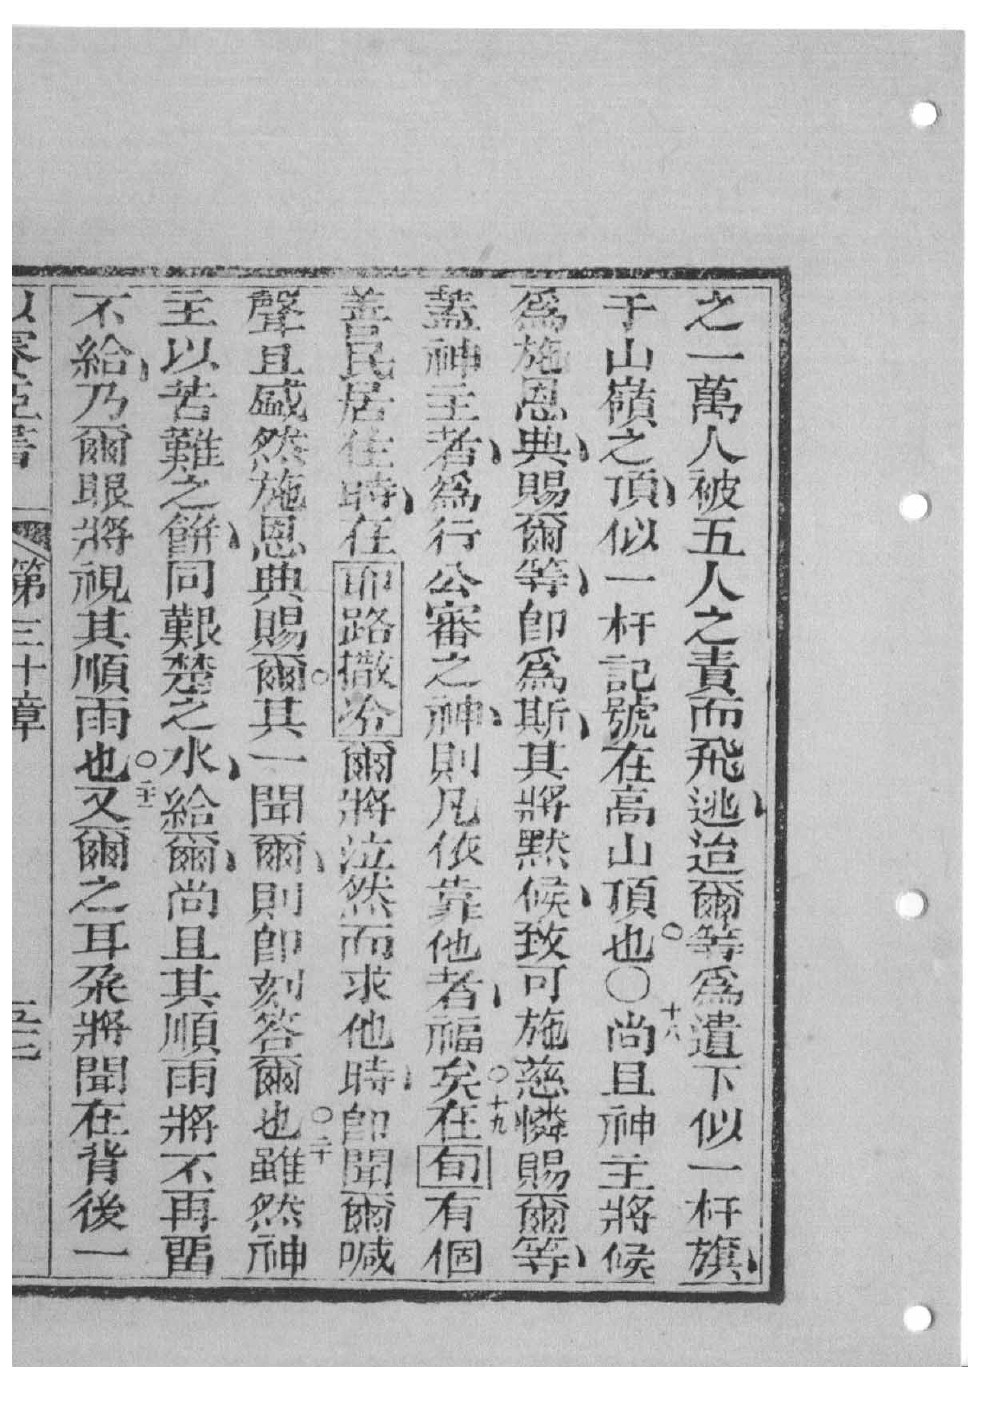 之一萬人被五人之責而飛逃迨爾等爲遺下似一杆旗
于山嶺之頂似一杆記號在高山頂也○十八○尚且神主將候
爲施恩典賜爾等卽爲斯其將默候致可施慈憐賜爾等
蓋神主者爲行公審之神則凡依靠他者福矣○十九在旬有個
善民居住時在耶路撒冷爾將泣然而求他時卽聞爾喊
聲且盛然施恩典賜爾○其一聞爾則卽刻答爾也○二十雖然神
主以苦難之餅同艱楚之水給爾尚且其順雨將不再畱
不給乃爾眼將視其順雨也○二十一又爾之耳朶將聞在背後一
以賽亞書 第三十章